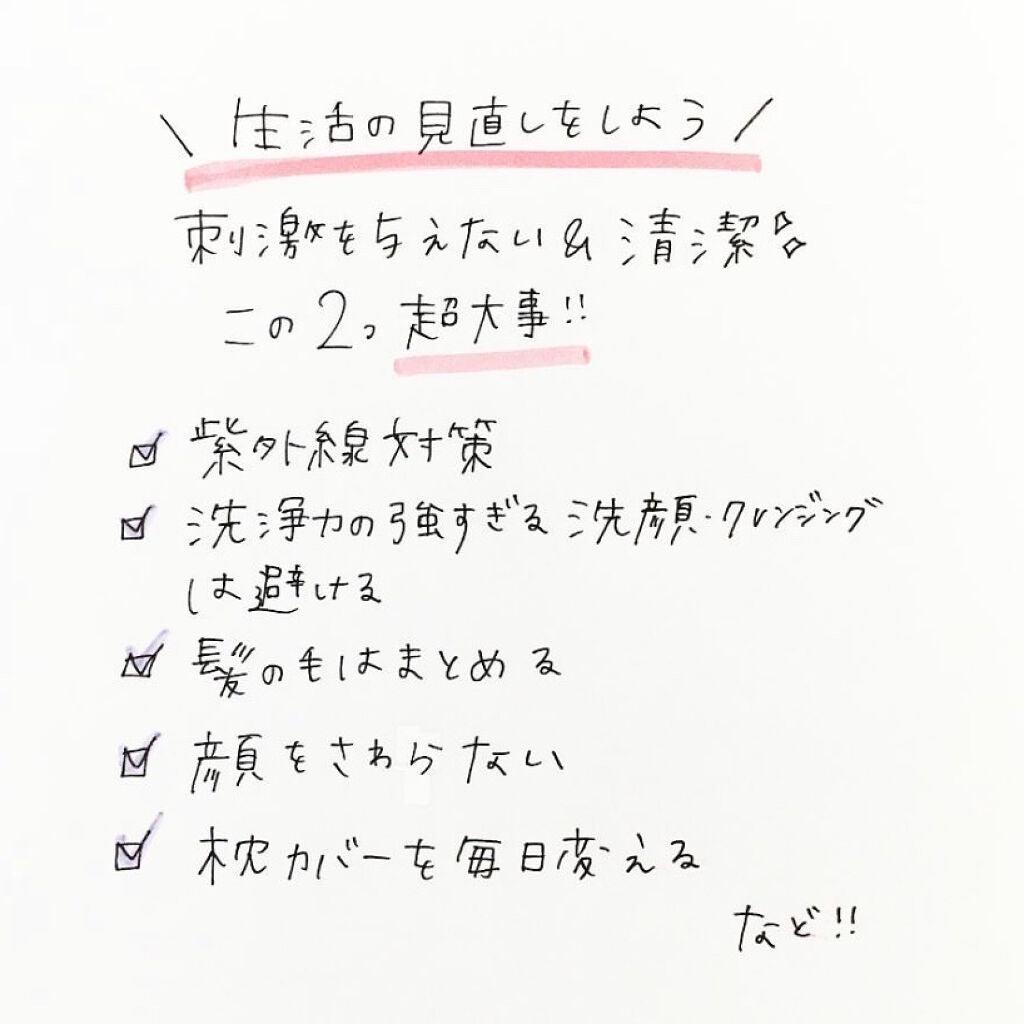 \ 生活の見直しをしよう /
刺激を与えない & 清潔✧
この2つ 超大事!!
☑ 紫外線対策
☑ 洗浄力の強すぎる 洗顔・クレンジング
は避ける
☑ 髪の毛はまとめる
☑ 顔をさわらない
☑ 枕カバーを毎日変える
など!!